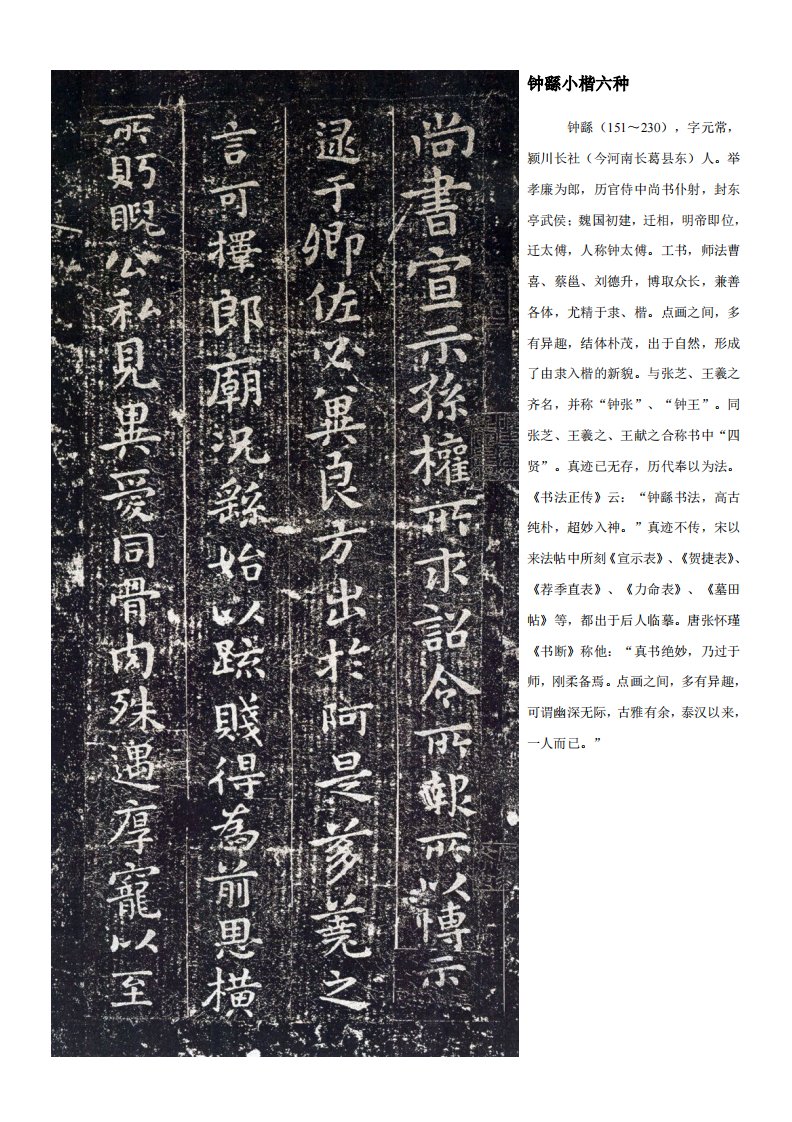 钟繇小楷六种
钟繇（151～230），字元常，
颍川长社（今河南长葛县东）人。举
孝廉为郎，历官侍中尚书仆射，封东
亭武侯；魏国初建，迁相，明帝即位，
迁太傅，人称钟太傅。工书，师法曹
喜、蔡邕、刘德升，博取众长，兼善
各体，尤精于隶、楷。点画之间，多
有异趣，结体朴茂，出于自然，形成
了由隶入楷的新貌。与张芝、王羲之
齐名，并称“钟张”、“钟王”。同
张芝、王羲之、王献之合称书中“四
贤”。真迹已无存，历代奉以为法。
《书法正传》云：“钟繇书法，高古
纯朴，超妙入神。”真迹不传，宋以
来法帖中所刻《宣示表》、《贺捷表》、
《荐季直表》、《力命表》、《墓田
帖》等，都出于后人临摹。唐张怀瑾
《书断》称他：“真书绝妙，乃过于
师，刚柔备焉。点画之间，多有异趣，
可谓幽深无际，古雅有余，泰汉以来，
一人而已。”
尚書宣示孫權所求詔令所報所以博示
逮于卿佐必冀良方出於阿是芻蕘之
言可擇郎廟況繇始以疏賤得為前恩橫
所眄睨公私見異愛同骨肉殊遇厚寵以至